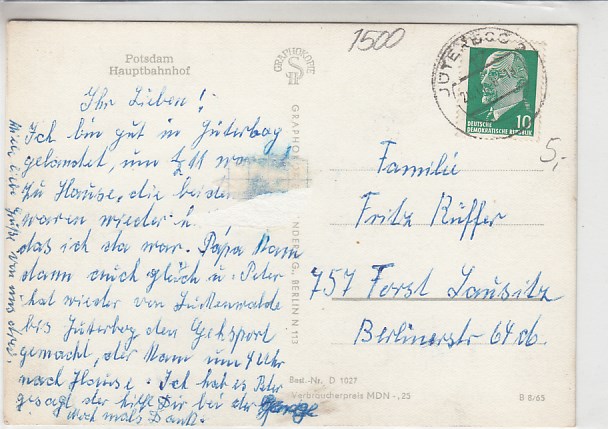 1500
Potsdam
Hauptbahnhof
GRAPHOKOPIE
JÜTERBOG 2
10
DEUTSCHE
DEMOKRATISCHE REPUBLIK
5,-
Ihr Lieben!
Ich bin gut in Jüterbog
gelandet, um ½ 11 war
zu Hause, die beiden
waren wieder
das ich da war. Papa kam
dann auch gleich u. Peter
hat wieder von Luckenwalde
bis Jüterbog den Gehsport
gemacht, der kam um 4 Uhr
nach Hause. Ich hab es Peter
gesagt der hilft Dir bei der Garage
Noch mals Dank.
uns
Familie
Fritz Küffer
757 Forst Lausitz
Berlinerstr 64 b.
GRAPHO
NDER K.G., BERLIN N 113
Best.-Nr. D 1027
Verbraucherpreis MDN -,25
B 8/65